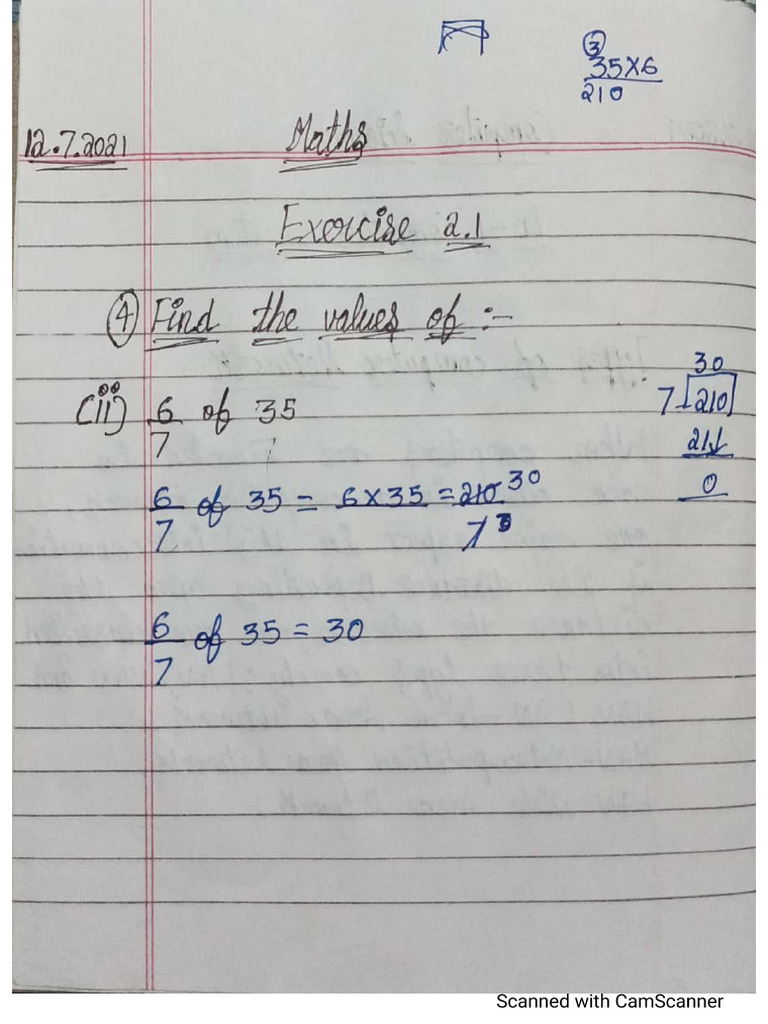 ③
35×6
210
12.7.2021 Maths
Exercise 2.1
④ Find the values of :-
(ii) 6/7 of 35
6/7 of 35 = 6×35 = 210/7 30
6/7 of 35 = 30
30
7 210
21↓
0
Scanned with CamScanner